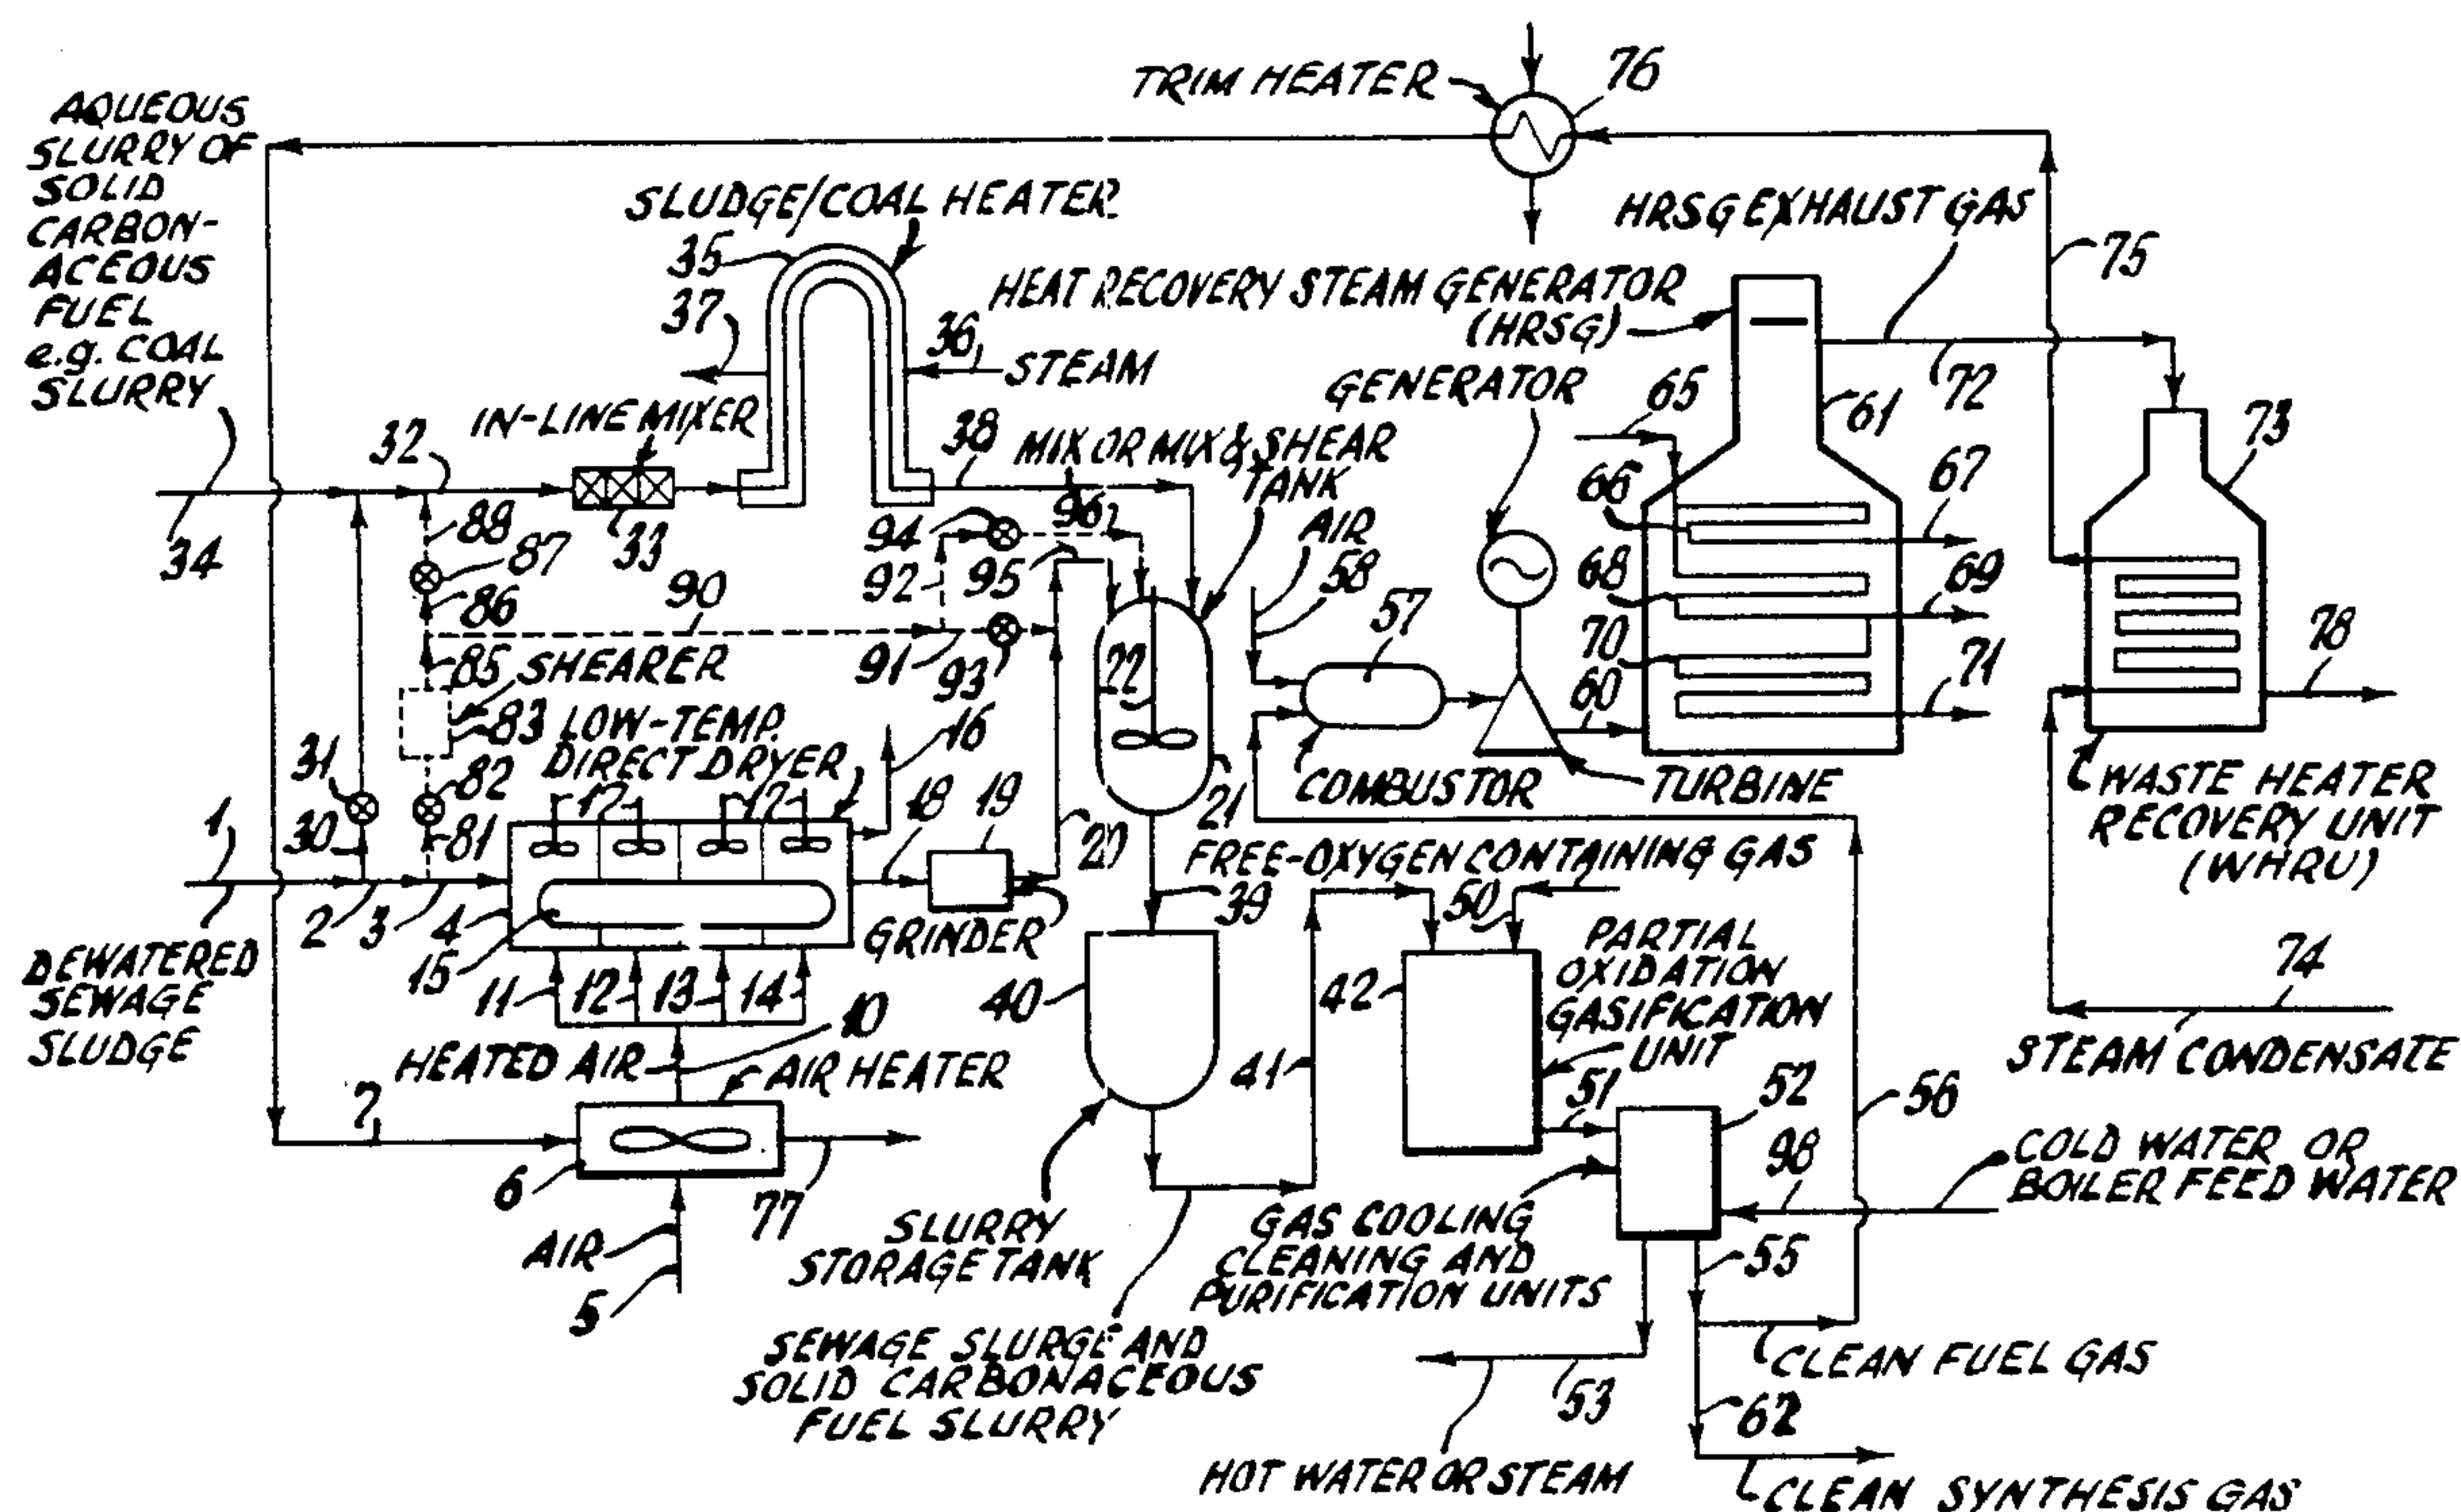 AQUEOUS
SLURRY OF
SOLID
CARBON-
ACEOUS
FUEL
e.g. COAL
SLURRY
34
TRIM HEATER
76
SLUDGE/COAL HEATER
35
37
36
STEAM
HRSG EXHAUST GAS
75
HEAT RECOVERY STEAM GENERATOR
(HRSG)
72
61
73
GENERATOR
65
66
67
68
69
70
71
60
78
IN-LINE MIXER
32
33
38
MIX OR MIX & SHEAR
TANK
88
87
86
90
94
96
92
95
91
93
AIR
58
57
22
85
SHEARER
83
LOW-TEMP.
DIRECT DRYER
16
31
82
17
17
18
19
21
COMBUSTOR
TURBINE
WASTE HEATER
RECOVERY UNIT
(WHRU)
1
30
81
20
FREE-OXYGEN CONTAINING GAS
50
2
3
4
15
GRINDER
39
DEWATERED
SEWAGE
SLUDGE
11
12
13
14
10
40
42
PARTIAL
OXIDATION
GASIFICATION
UNIT
74
STEAM CONDENSATE
HEATED AIR
AIR HEATER
41
51
52
56
7
6
77
98
COLD WATER OR
BOILER FEED WATER
AIR
5
SLURRY
STORAGE TANK
GAS COOLING
CLEANING AND
PURIFICATION UNITS
55
SEWAGE SLURGE AND
SOLID CARBONACEOUS
FUEL SLURRY
53
CLEAN FUEL GAS
62
HOT WATER OR STEAM
CLEAN SYNTHESIS GAS